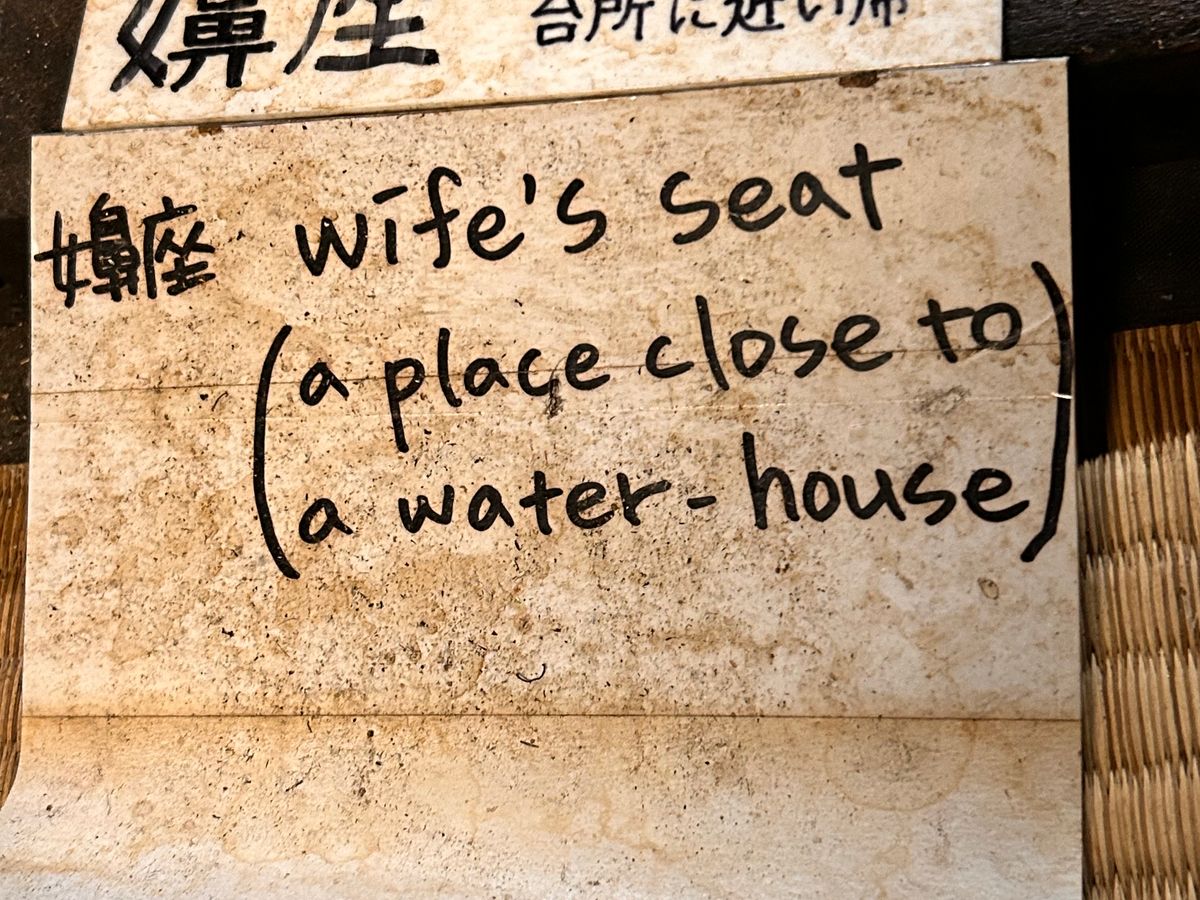 嬶座 台所に近い席
嬶座 wife's seat
(a place close to
a water-house)